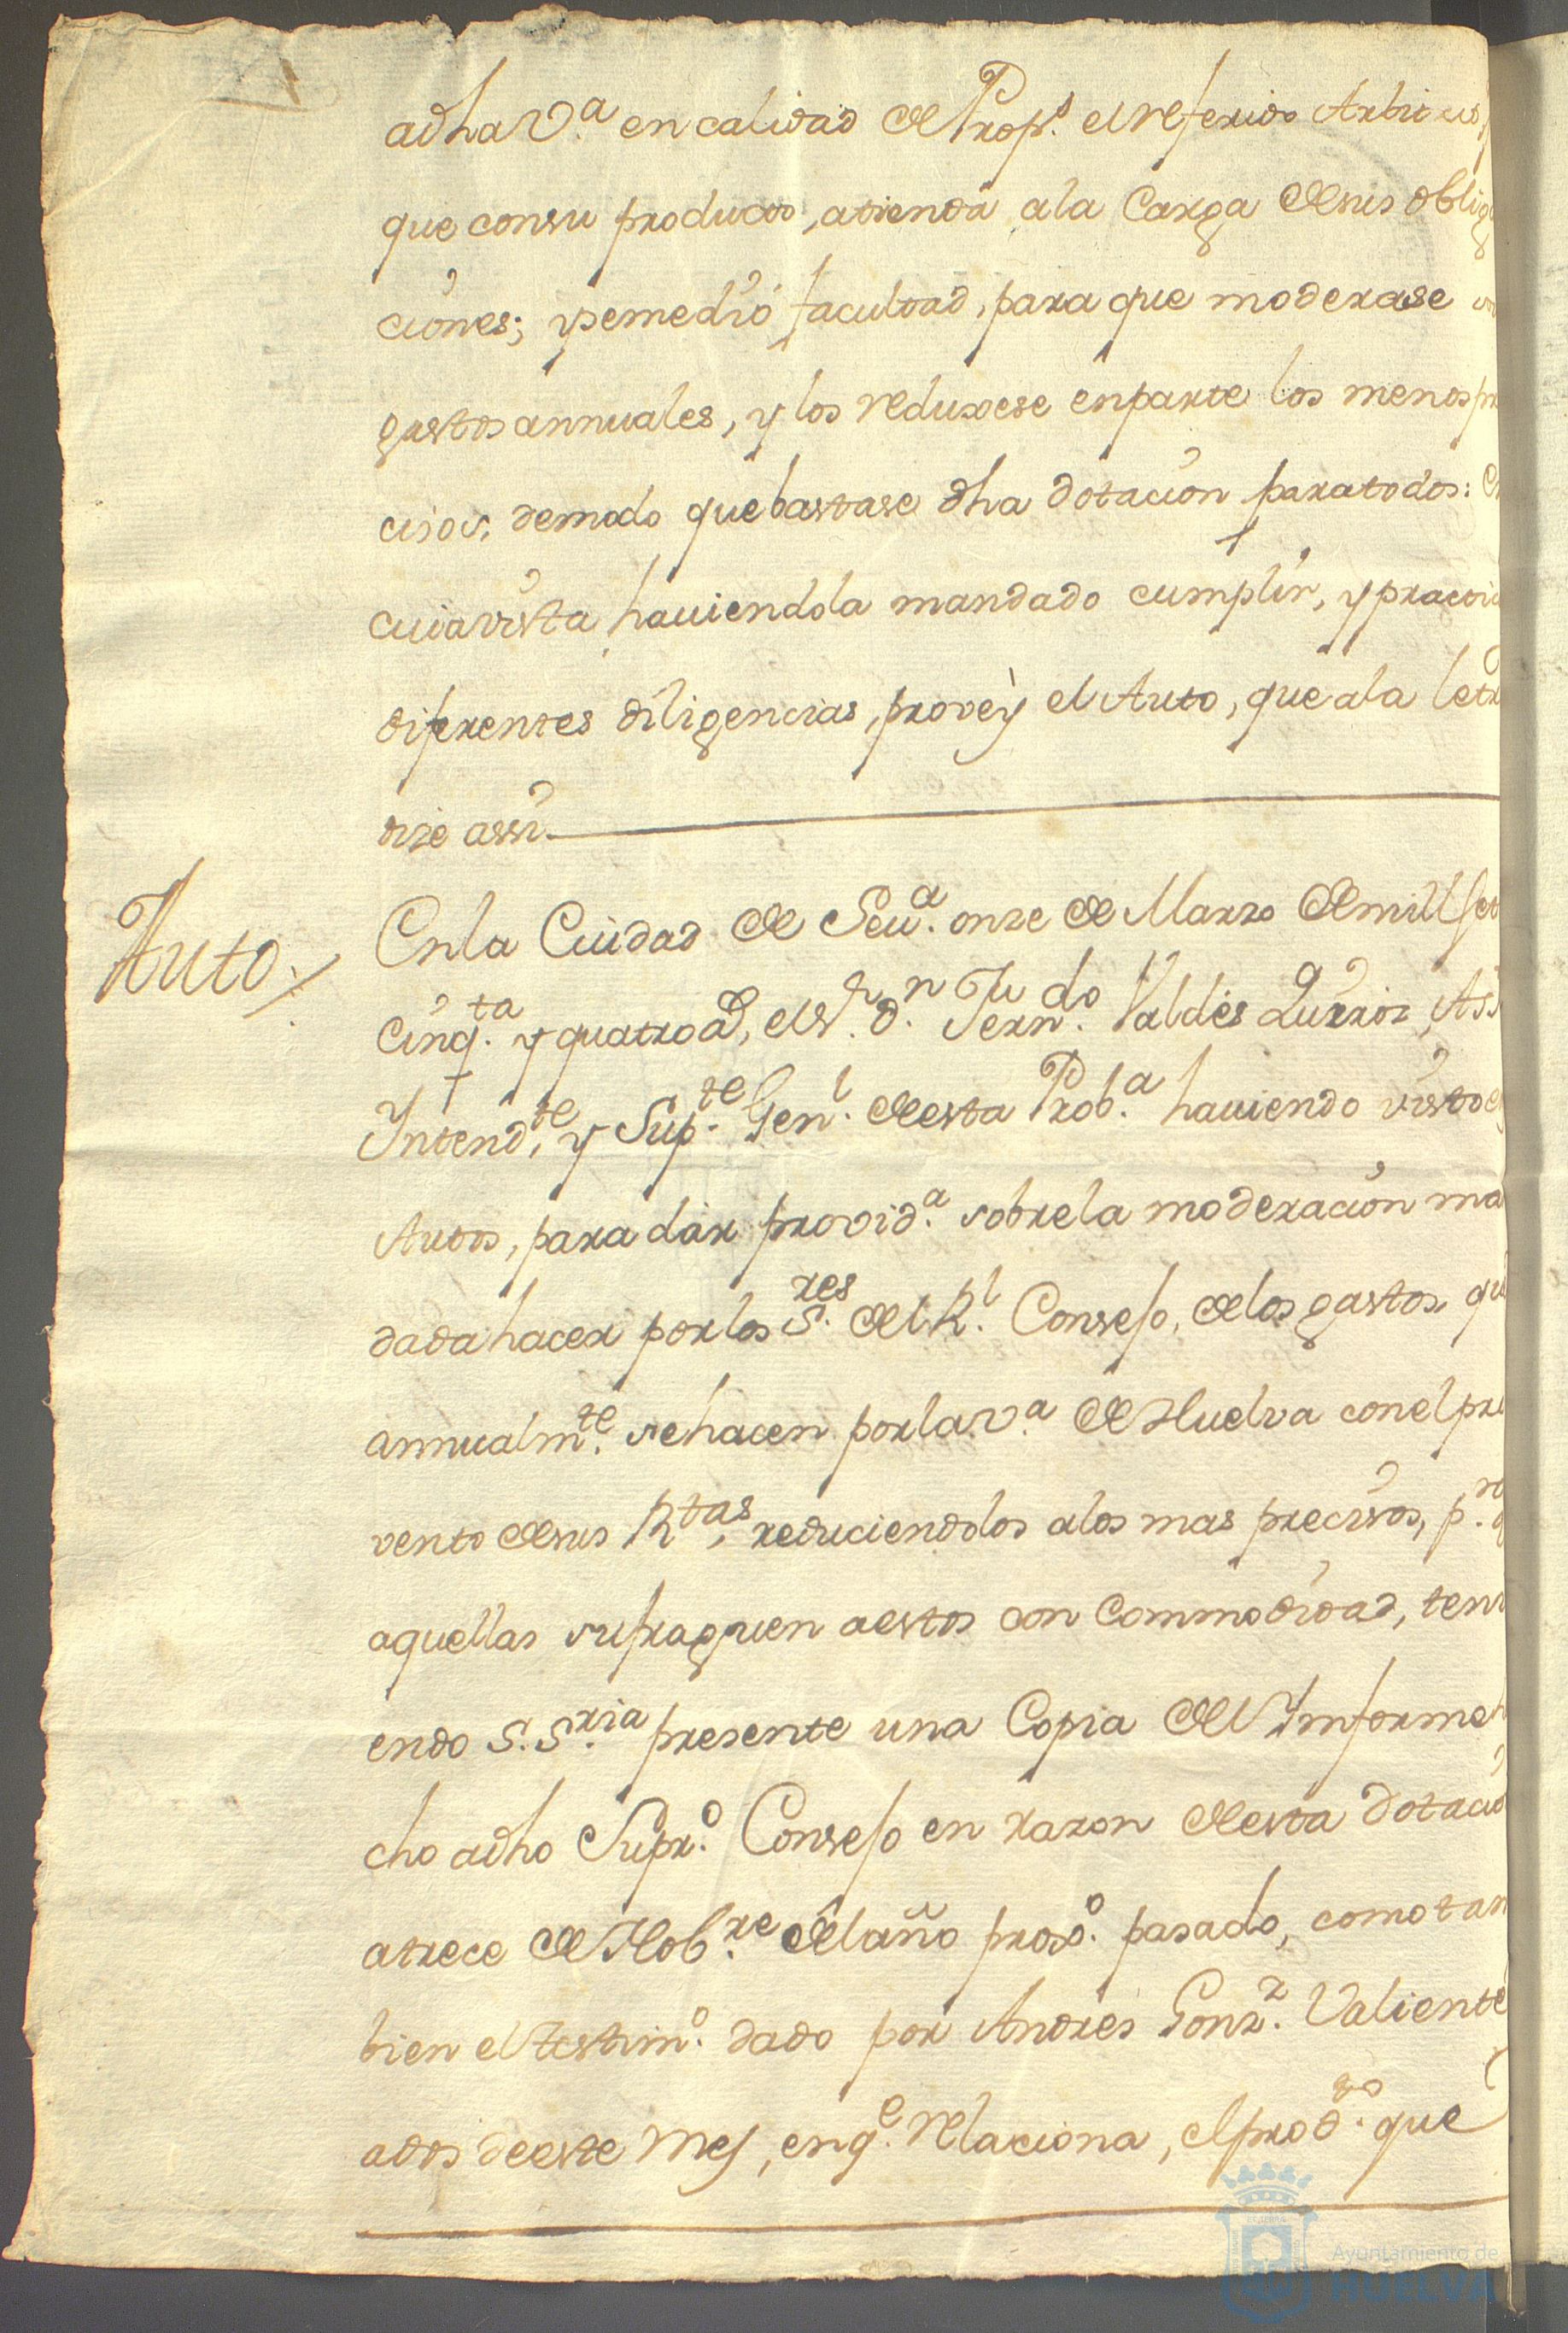 adha V.ª en calidad de Prop.s el referido Arbitrio,
que con su producto, atienda a la Carga de sus oblig
ciones; y se me dió facultad, para que moderase
gastos annuales, y los reduxese en parte los menos pre
cisos; de modo que bastase dha dotacion para todos:
cuia vista haviendola mandado cumplir, y practic
diferentes diligencias, proveÿ el Auto, que a la letr
dize assi.
Auto.
En la Ciudad de Seu.ª onze de Marzo de mill set
cinq.ta y quatro a.s, el S.r D.n Fern.do Valdes Quiros, As.
Intend.te y Sup.te Gen.l de esta Prob.ª haviendo visto es
Autos, para dar provid.ª sobre la moderacion ma
dada hacer por los S.res del R.l Consejo, de los gastos, qu
annualm.te se hacen por la V.ª de Huelva con el pro
vento de sus R.tas, reduciendolos a los mas precisos, p.ra q
aquellas sufraguen a estos con Commodidad, teni
endo S.S.ria presente una Copia del Informe h
cho a dho Supr.o Consejo en razon de esta dotacio
a trece de Nob.re del año prox.o pasado, como tan
bien el testim.o dado por Andres Gonz.z Valiente
a dos de este Mes, en q.e relaciona, el prod.to que
Ayuntamiento de
HUELVA